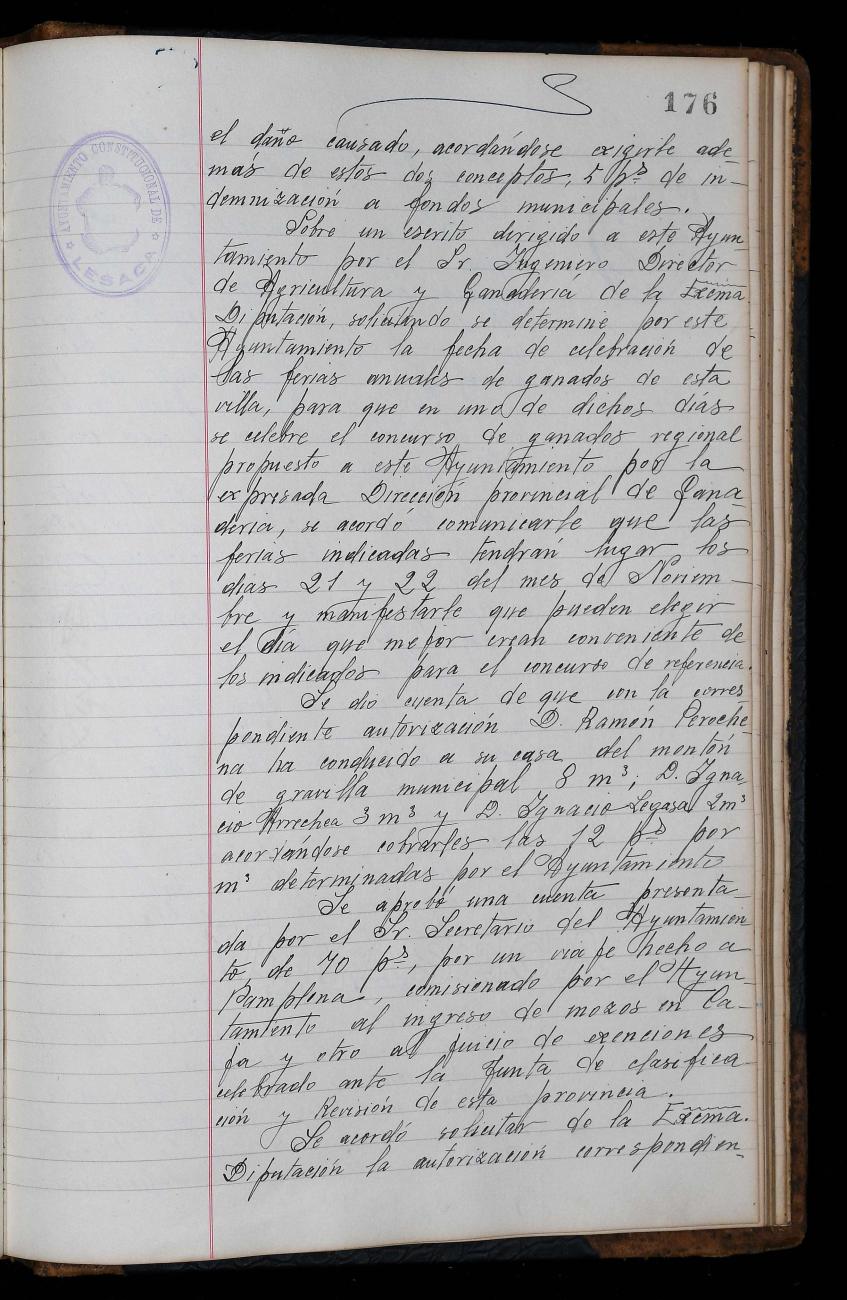 176
AYUNTAMIENTO CONSTITUCIONAL DE
LESACA
el daño causado, acordándose exigirle ade-
más de estos dos conceptos, 5 pts de in-
demnización a fondos municipales.
Sobre un escrito dirigido a este Ayun
tamiento por el Sr. Ingeniero Director
de Agricultura y Ganadería de la Excma
Diputación, solicitando se determine por este
Ayuntamiento la fecha de celebración de
las ferias anuales de ganados de esta
villa, para que en uno de dichos días
se celebre el concurso de ganados regional
propuesto a este Ayuntamiento por la
expresada Dirección provincial de Gana-
dería, se acordó comunicarle que las
ferias indicadas tendrán lugar los
días 21 y 22 del mes de Noviem-
bre y manifestarle que pueden elegir
el día que mejor crean conveniente de
los indicados para el concurso de referencia.
Se dió cuenta de que con la corres
pondiente autorización D. Ramón Peroche
na ha conducido a su casa del montón
de gravilla municipal 8 m³; D. Igna-
cio Arrechea 3 m³ y D. Ignacio Legasa 2 m³
acordándose cobrarles las 12 pts por
m³ determinadas por el Ayuntamiento
Se aprobó una cuenta presenta-
da por el Sr. Secretario del Ayuntamien
to, de 70 pts, por un viaje hecho a
Pamplona, comisionado por el Ayun-
tamiento al ingreso de mozos en Ca-
ja y otro al juicio de exenciones
celebrado ante la Junta de clasifica
ción y Revisión de esta provincia.
Se acordó solicitar de la Excma.
Diputación la autorización correspondien-